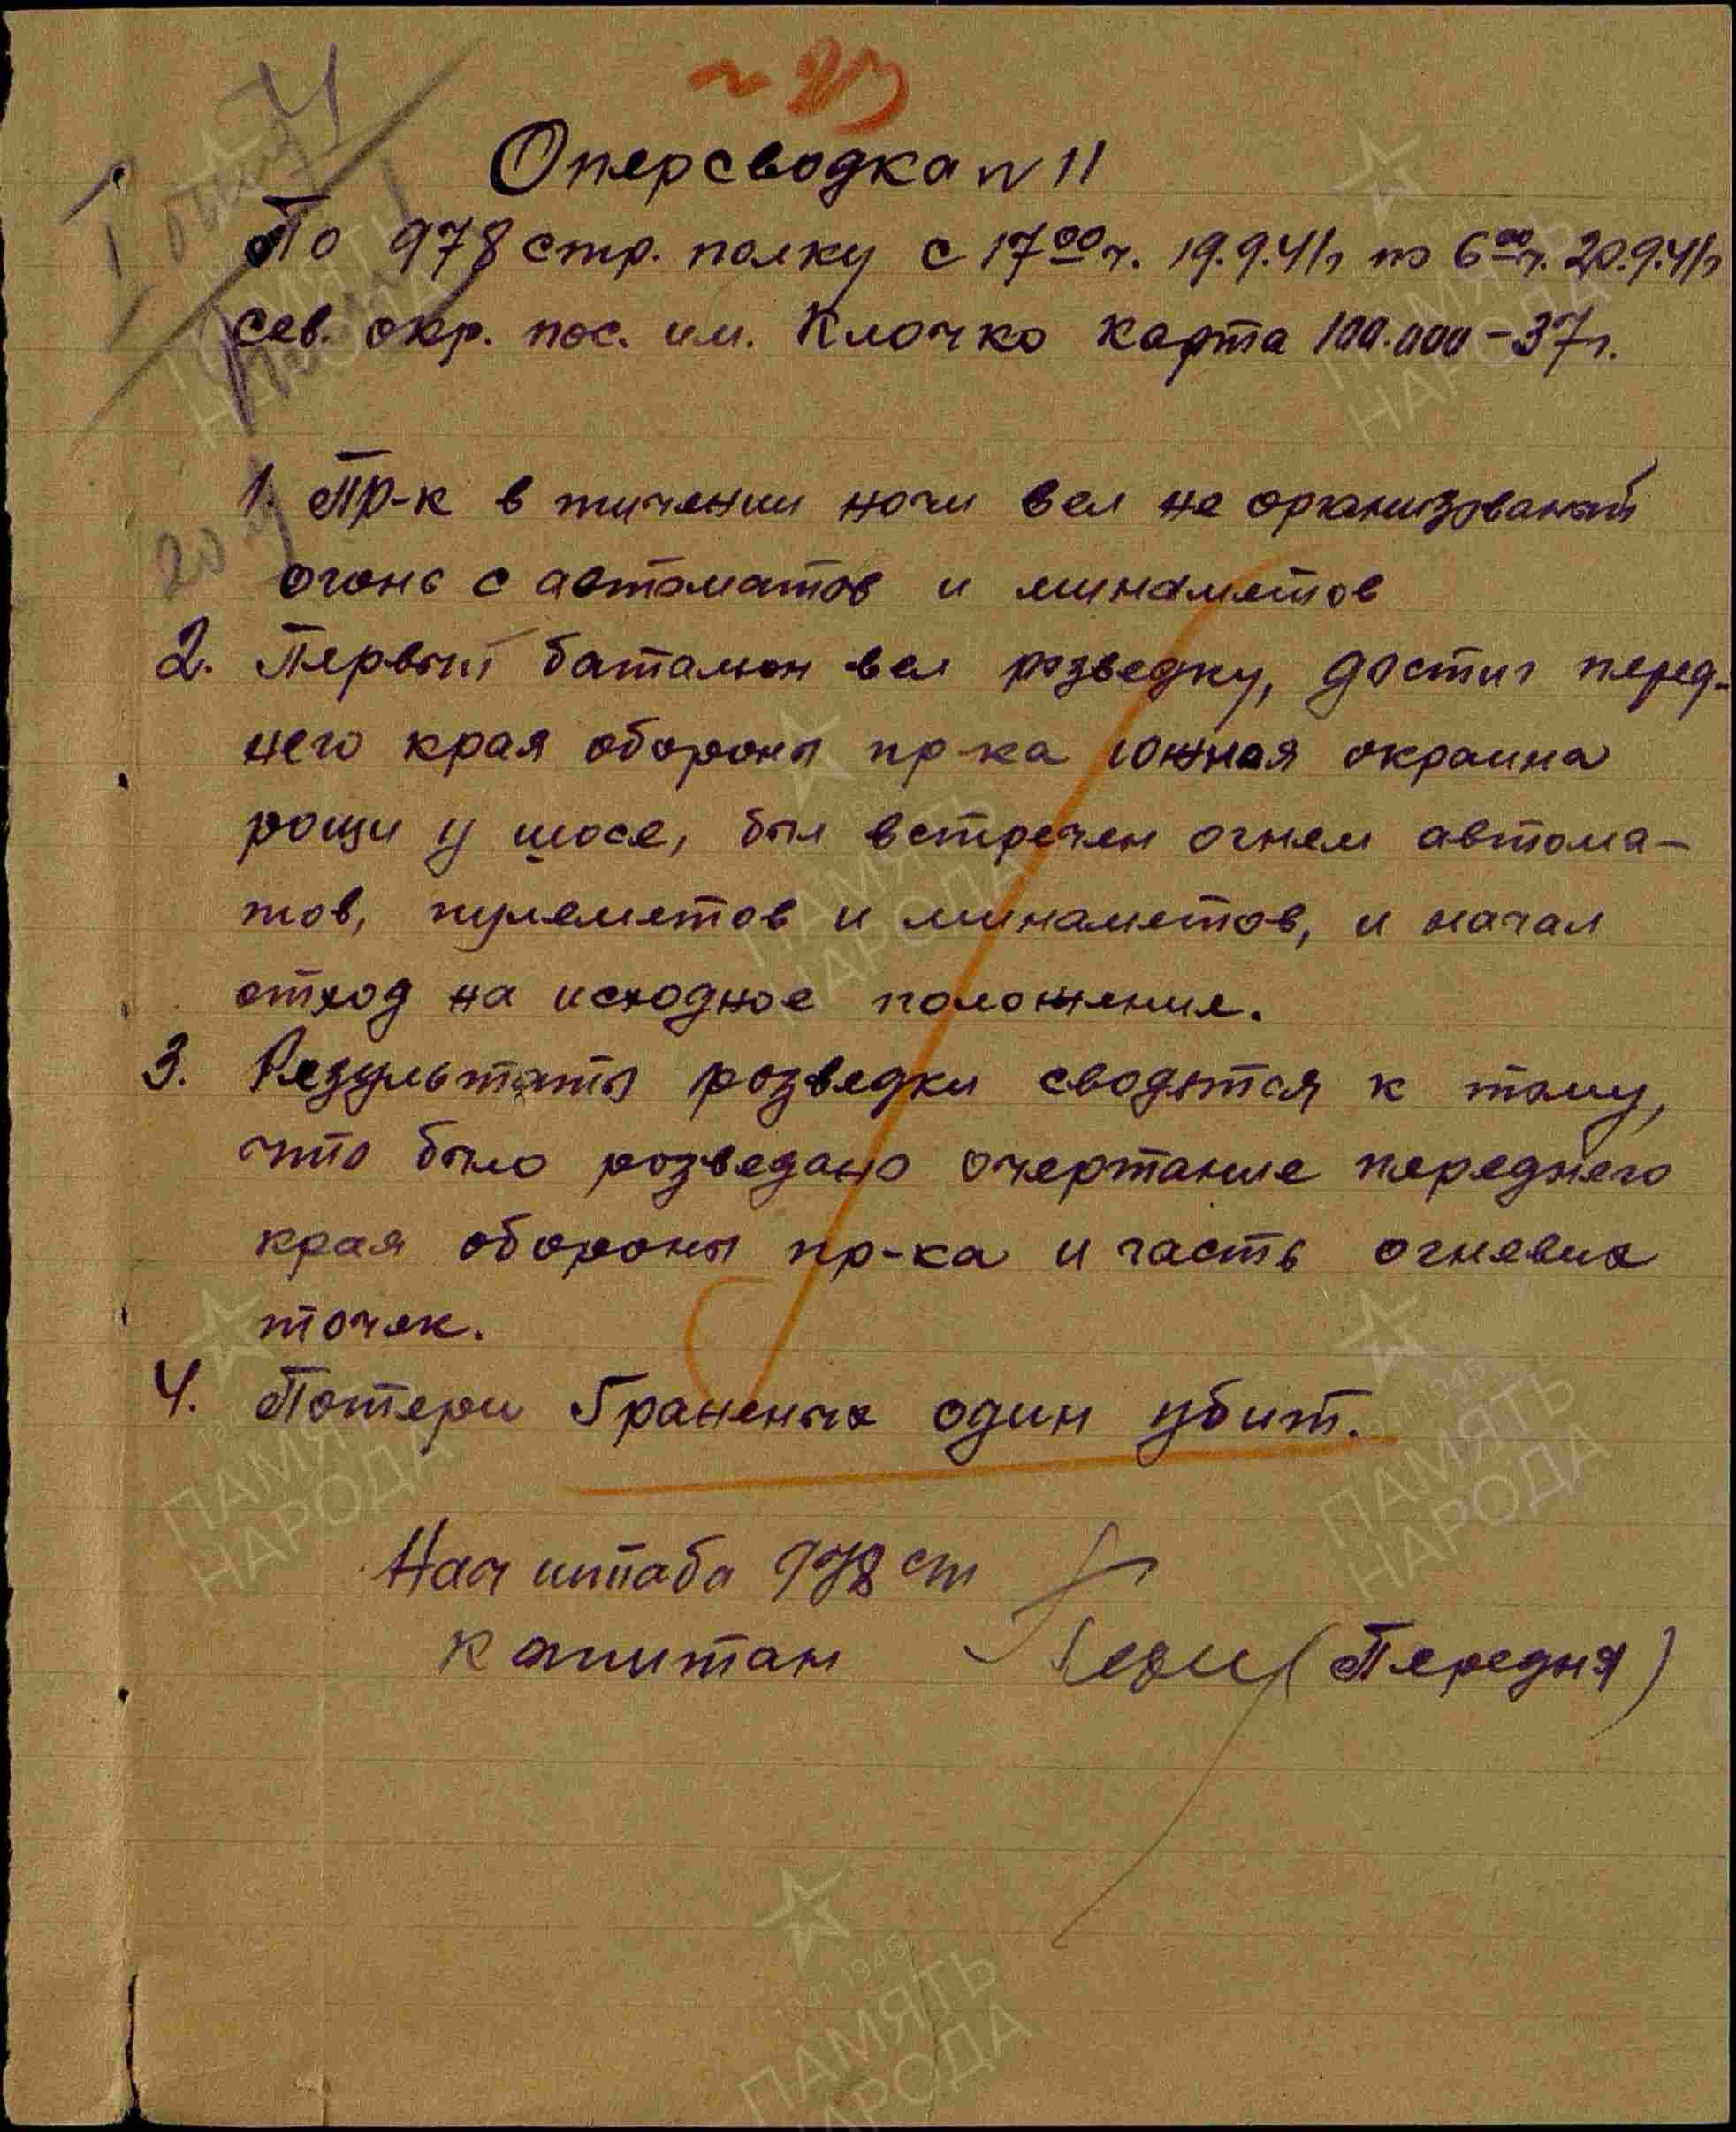 Оперсводка N 11
По 978 стр. полку с 17 00 ч. 19.9.41г по 6 00 ч. 20.9.41г
сев. окр. пос. им. Клочко карта 100.000-37г.
1. Пр-к в тичении ночи вел не организованый
огонь с автоматов и минаметов
2. Первый баталион вел розведку, достиг перед-
него края обороны пр-ка южная окраина
рощи у шосе, был встречен огнем автома-
тов, пулеметов и минаметов, и начал
отход на исходное положение.
3. Результаты розведки сводятся к тому,
что было розведано очертание переднего
края обороны пр-ка и часть огневих
точек.
4. Потери 5 раненых один убит.
Нач штаба 978 сп
капитан (Передня)
ПАМЯТЬ
НАРОДА
1941 1945